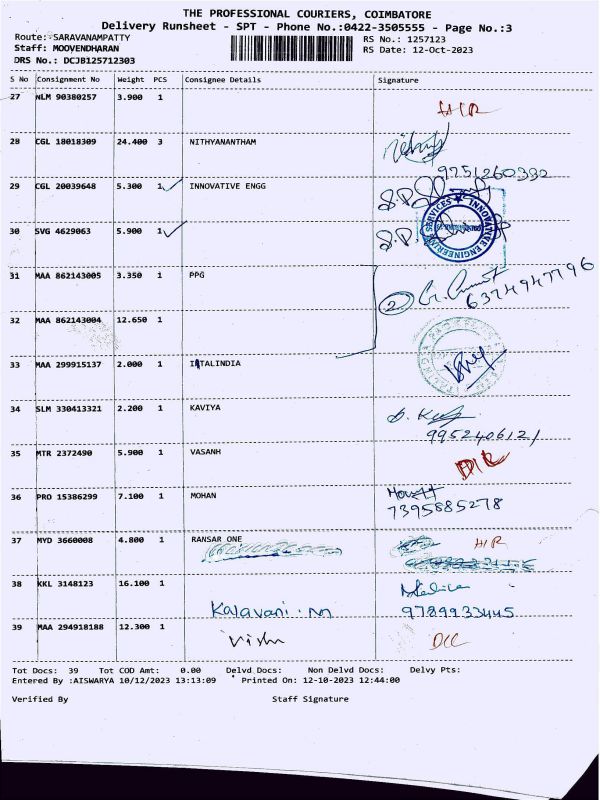 THE PROFESSIONAL COURIERS, COIMBATORE
Delivery Runsheet - SPT - Phone No.:0422-3505555 - Page No.:3
Route: SARAVANAMPATTY RS No.: 1257123
Staff: MOOVENDHARAN RS Date: 12-Oct-2023
DRS No.: DCJB125712303
S No Consignment No Weight PCS Consignee Details Signature
27 NLM 90380257 3.900 1 H/R
28 CGL 18018309 24.400 3 NITHYANANTHAM
9751260330
29 CGL 20039648 5.300 1 INNOVATIVE ENGG
30 SVG 4629063 5.900 1
INNOVATIVE ENGINEERING SERVICES
31 MAA 862143005 3.350 1 PPG
2 6374947796
32 MAA 862143004 12.650 1
33 MAA 299915137 2.000 1 INTALINDIA
34 SLM 330413321 2.200 1 KAVIYA
9952406121
35 MTR 2372490 5.900 1 VASANH
36 PRO 15386299 7.100 1 MOHAN
7395885278
37 MYD 3660008 4.800 1 RANSAR ONE H/R
38 KKL 3148123 16.100 1
Kalavani. M 9789933445
39 MAA 294918188 12.300 1 Vishu DCC
Tot Docs: 39 Tot COD Amt: 0.00 Delvd Docs: Non Delvd Docs: Delvy Pts:
Entered By :AISWARYA 10/12/2023 13:13:09 Printed On: 12-10-2023 12:44:00
Verified By Staff Signature